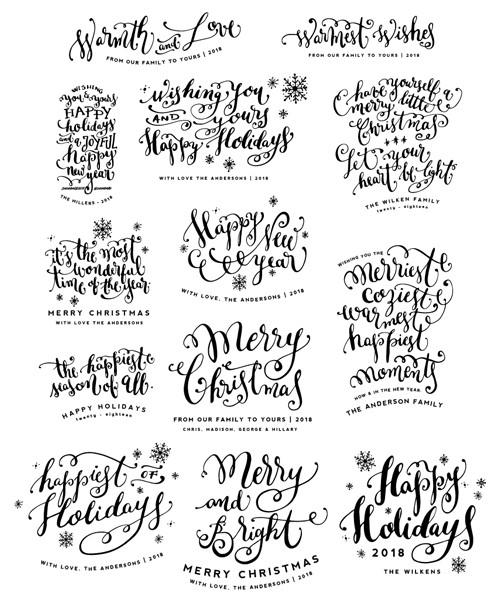 Warmth and Love
FROM OUR FAMILY TO YOURS | 2018
Warmest Wishes
FROM OUR FAMILY TO YOURS | 2018
WISHING
you & yours
HAPPY
holidays
and a JOYFUL
happy
new year
THE WILLENS - 2018
wishing you
AND yours
Happy Holidays
WITH LOVE THE ANDERSONS - 2018
have yourself a
merry little
Christmas
let your
heart be light
THE WILKEN FAMILY
twenty - eighteen
it's the most
wonderful
time of the year
MERRY CHRISTMAS
WITH LOVE THE ANDERSONS
Happy
New
year
WITH LOVE, THE ANDERSONS | 2018
WISHING YOU THE
Merriest
coziest
warmest
happiest
Moments
NOW & IN THE NEW YEAR
THE ANDERSON FAMILY
the happiest
season of all.
HAPPY HOLIDAYS
twenty - eighteen
Merry
Christmas
FROM OUR FAMILY TO YOURS | 2018
CHRIS, MADISON, GEORGE & HILLARY
happiest OF
Holidays
WITH LOVE, THE ANDERSONS | 2018
Merry
and
Bright
MERRY CHRISTMAS
WITH LOVE, THE ANDERSONS | 2018
Happy
Holidays
2018
THE WILKENS